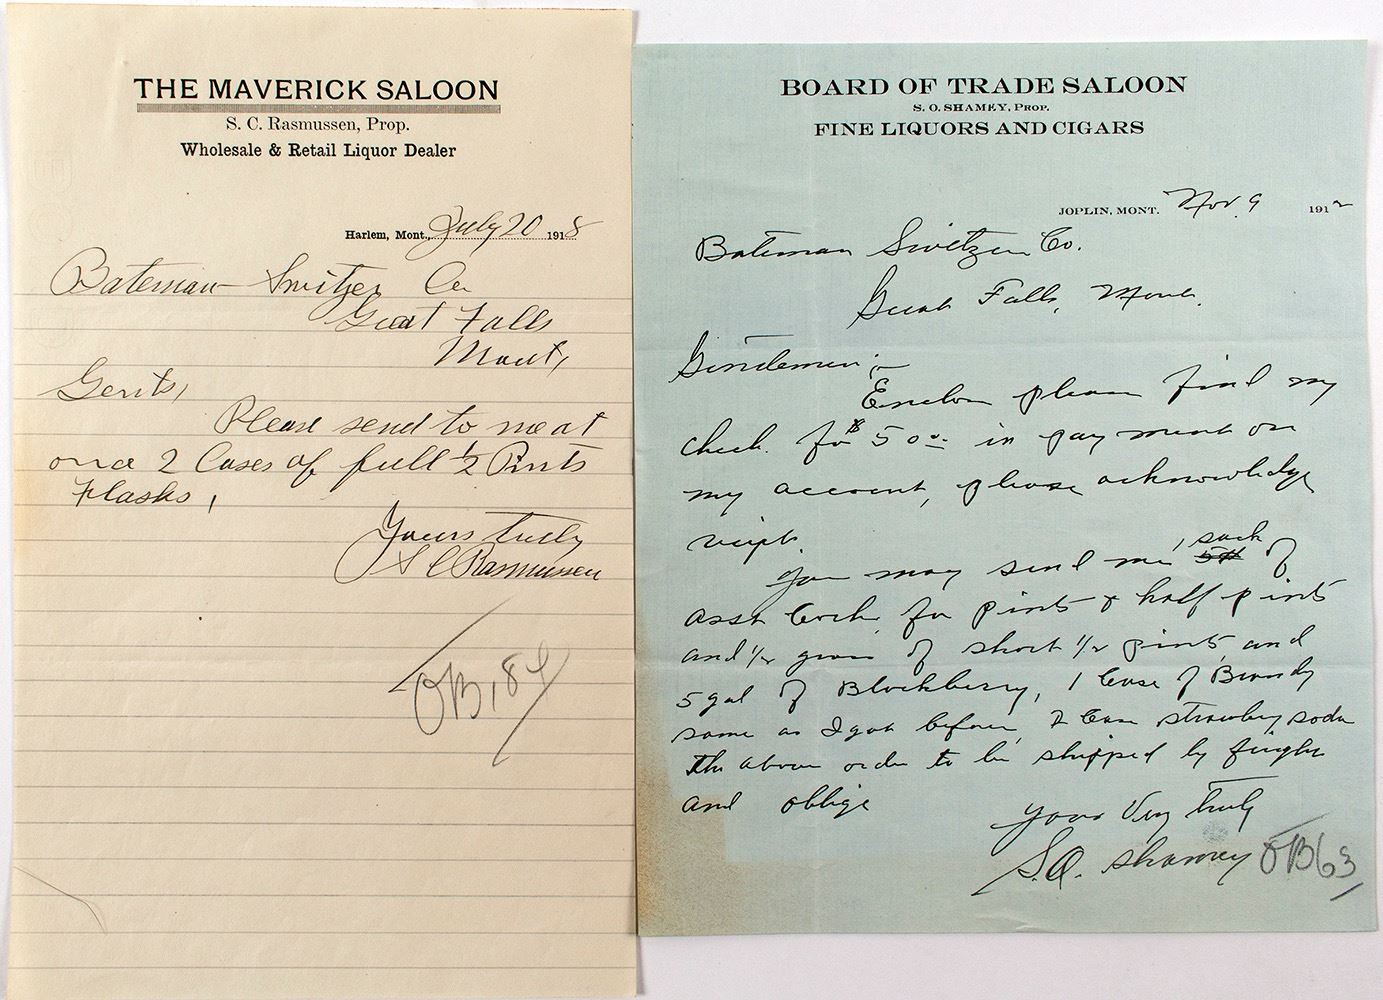 THE MAVERICK SALOON
S. C. Rasmussen, Prop.
Wholesale & Retail Liquor Dealer
Harlem, Mont., July 20 1918
Bateman Switzer Co
Great Falls
Mont,
Gents,
Please send to me at
once 2 Cases of full 1/2 Pints
Flasks,
Yours truly
S C Rasmussen
OB, 84
BOARD OF TRADE SALOON
S. O. SHAMEY, PROP.
FINE LIQUORS AND CIGARS
JOPLIN, MONT. Nov. 9 1912
Bateman Switzer Co.
Great Falls, Mont.
Gentlemen;-
Enclose please find my
check for $50 00 in payment on
my account, please acknowledge
recipt.
You may send me, sack of
asst Cork, for pints & half pints
and 1/2 gross of short 1/2 pints, and
5 gal of Blackberry, 1 Case of Brandy
same as I got before, 2 Case strawbery soda
the above order to be shipped by freight
and oblige
Yours Very truly
S.O. Shamey
OB63